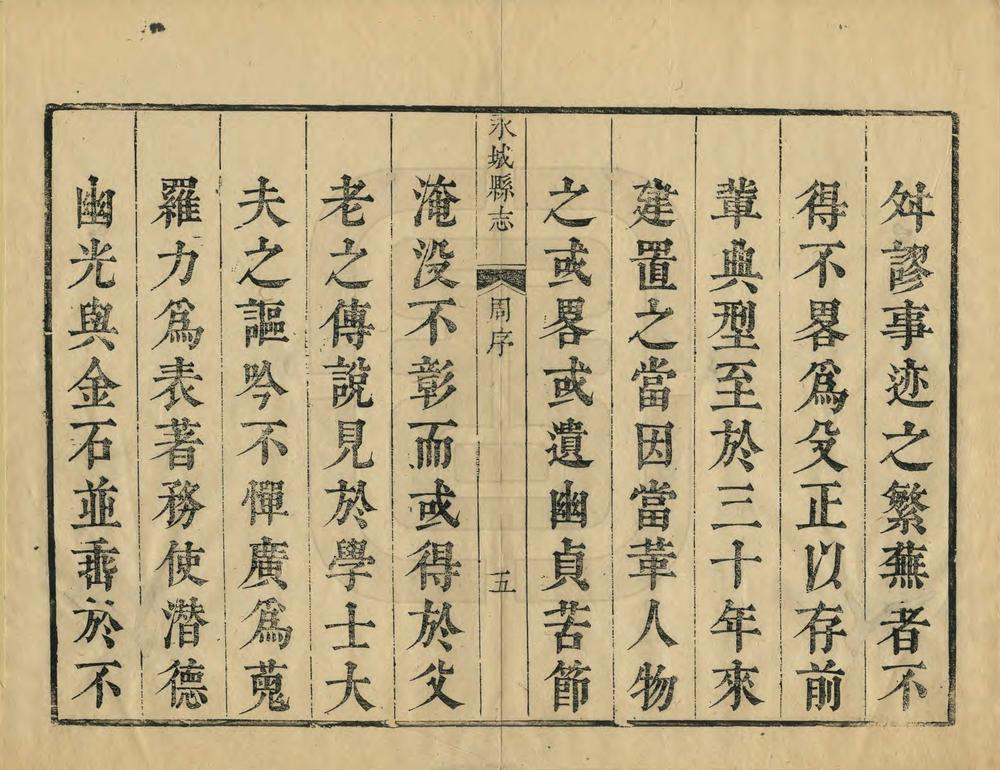 舛謬事迹之繁蕪者不
得不畧爲㕛正以存前
輩典型至於三十年來
建置之當因當革人物
之或畧或遺幽貞苦節
永城縣志 周序 五
淹没不彰而或得於父
老之傳說見於學士大
夫之謳吟不憚廣爲蒐
羅力爲表著務使潛德
幽光與金石並垂於不